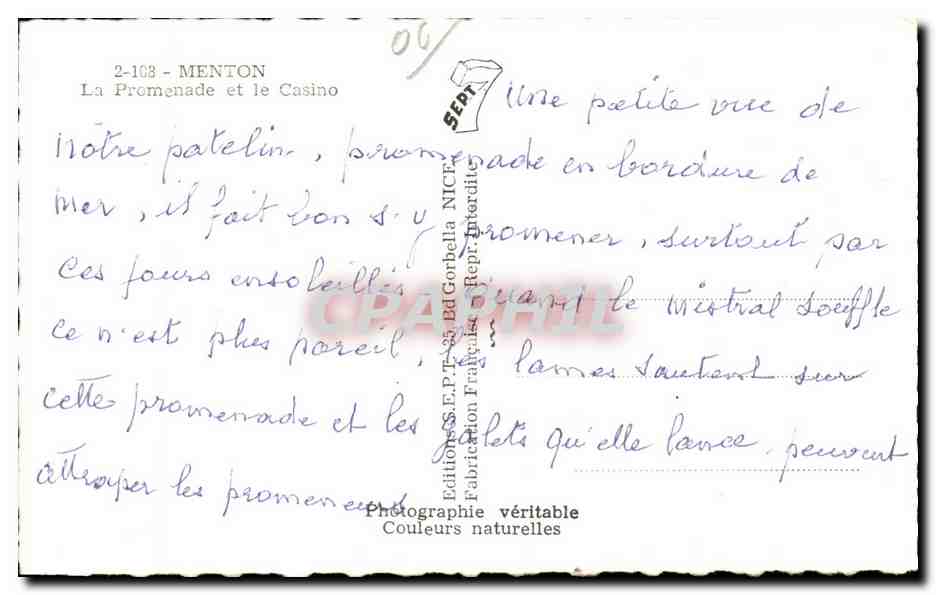 06/
2-108 - MENTON
La Promenade et le Casino
SEPT
Une petite vue de
nôtre patelin, promenade en bordure de
mer, il fait bon s'y promener, surtout par
ces jours ensoleillés - Quand le mistral souffle
ce n'est plus pareil, les lames sautent sur
cette promenade et les galets qu'elle lance, peuvent
attraper les promeneurs
Editions S.E.P.T. 35 Bd Gorbella NICE
Fabrication Française - Repr. Interdite
Photographie véritable
Couleurs naturelles
CPAPHIL